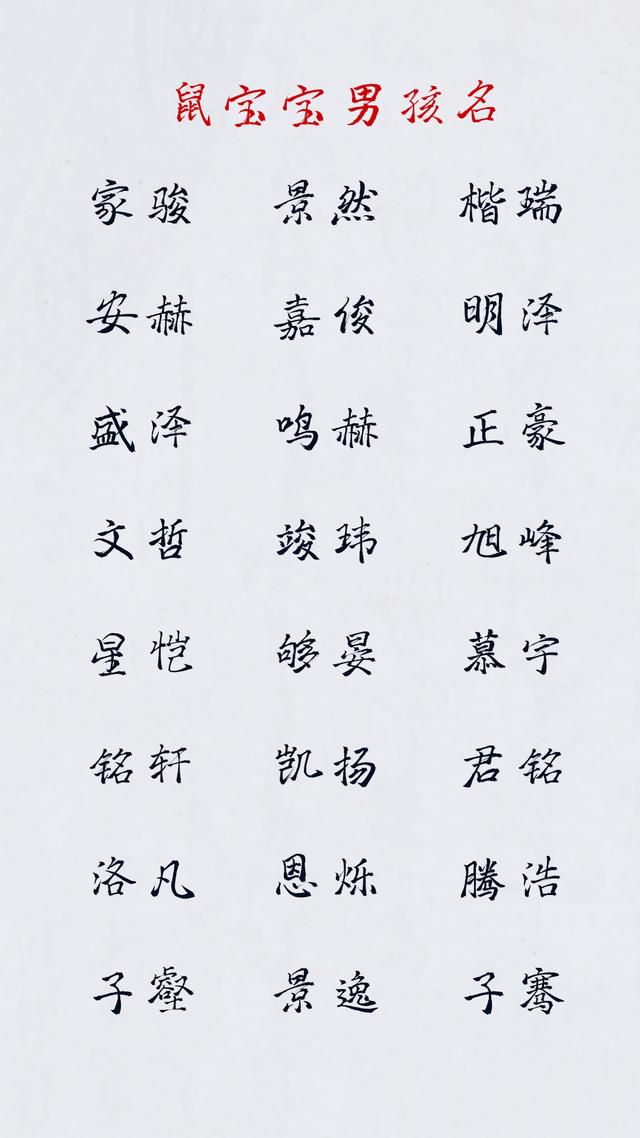 鼠宝宝男孩名
家骏 景然 楷瑞
安赫 嘉俊 明泽
盛泽 鸣赫 正豪
文哲 竣玮 旭峰
星恺 够晏 慕宇
铭轩 凯扬 君铭
洛凡 恩烁 腾浩
子壑 景逸 子骞